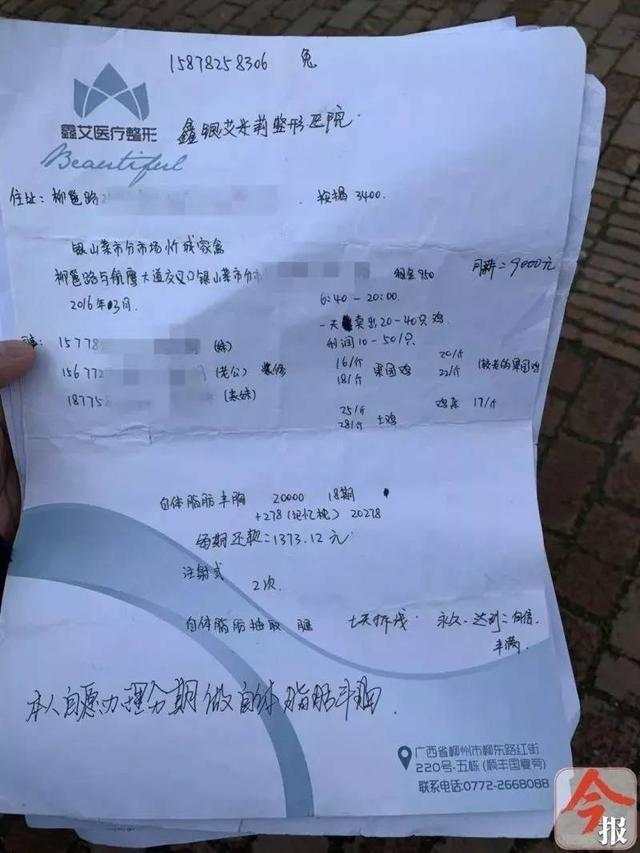 15878258306 兔
鑫艾医疗整形
Beautiful
鑫银艾米莉整形医院
住址: 柳邕路 按揭3400
银山菜市分市场忻城家禽
柳邕路与航鹰大道交叉口银山菜市分市 租金950 月薪:9000元
2016年03月. 6:40-20:00.
一天卖出20-40只鸡.
15778 (妹) 利润10-50/只
156772 (老公) 装修 16/斤 果园鸡 20/斤
18/斤 22/斤 (较老的果园鸡
18775 (表妹)
25/斤 鸡 17/斤
28/斤 土鸡
自体脂肪丰胸 20000 18期
+278(记忆枕) 20278
每期还款:1373.12元
注射式
2次.
自体脂肪抽取 腿 七天拆线 永久.达到:自信.
丰满.
本人自愿办理分期做自体脂肪丰胸.
广西省柳州市柳东路红街
220号-五栋(顺丰国宴旁)
联系电话:0772-2668088
今报